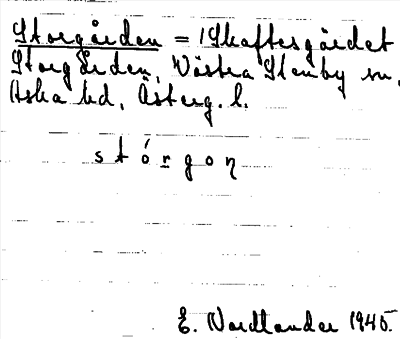 Storgården = Skaftesgärdet
Storgården, Västra Stenby sn,
Aska hd, Österg. l.
stórgoη
E. Nordlander 1945.